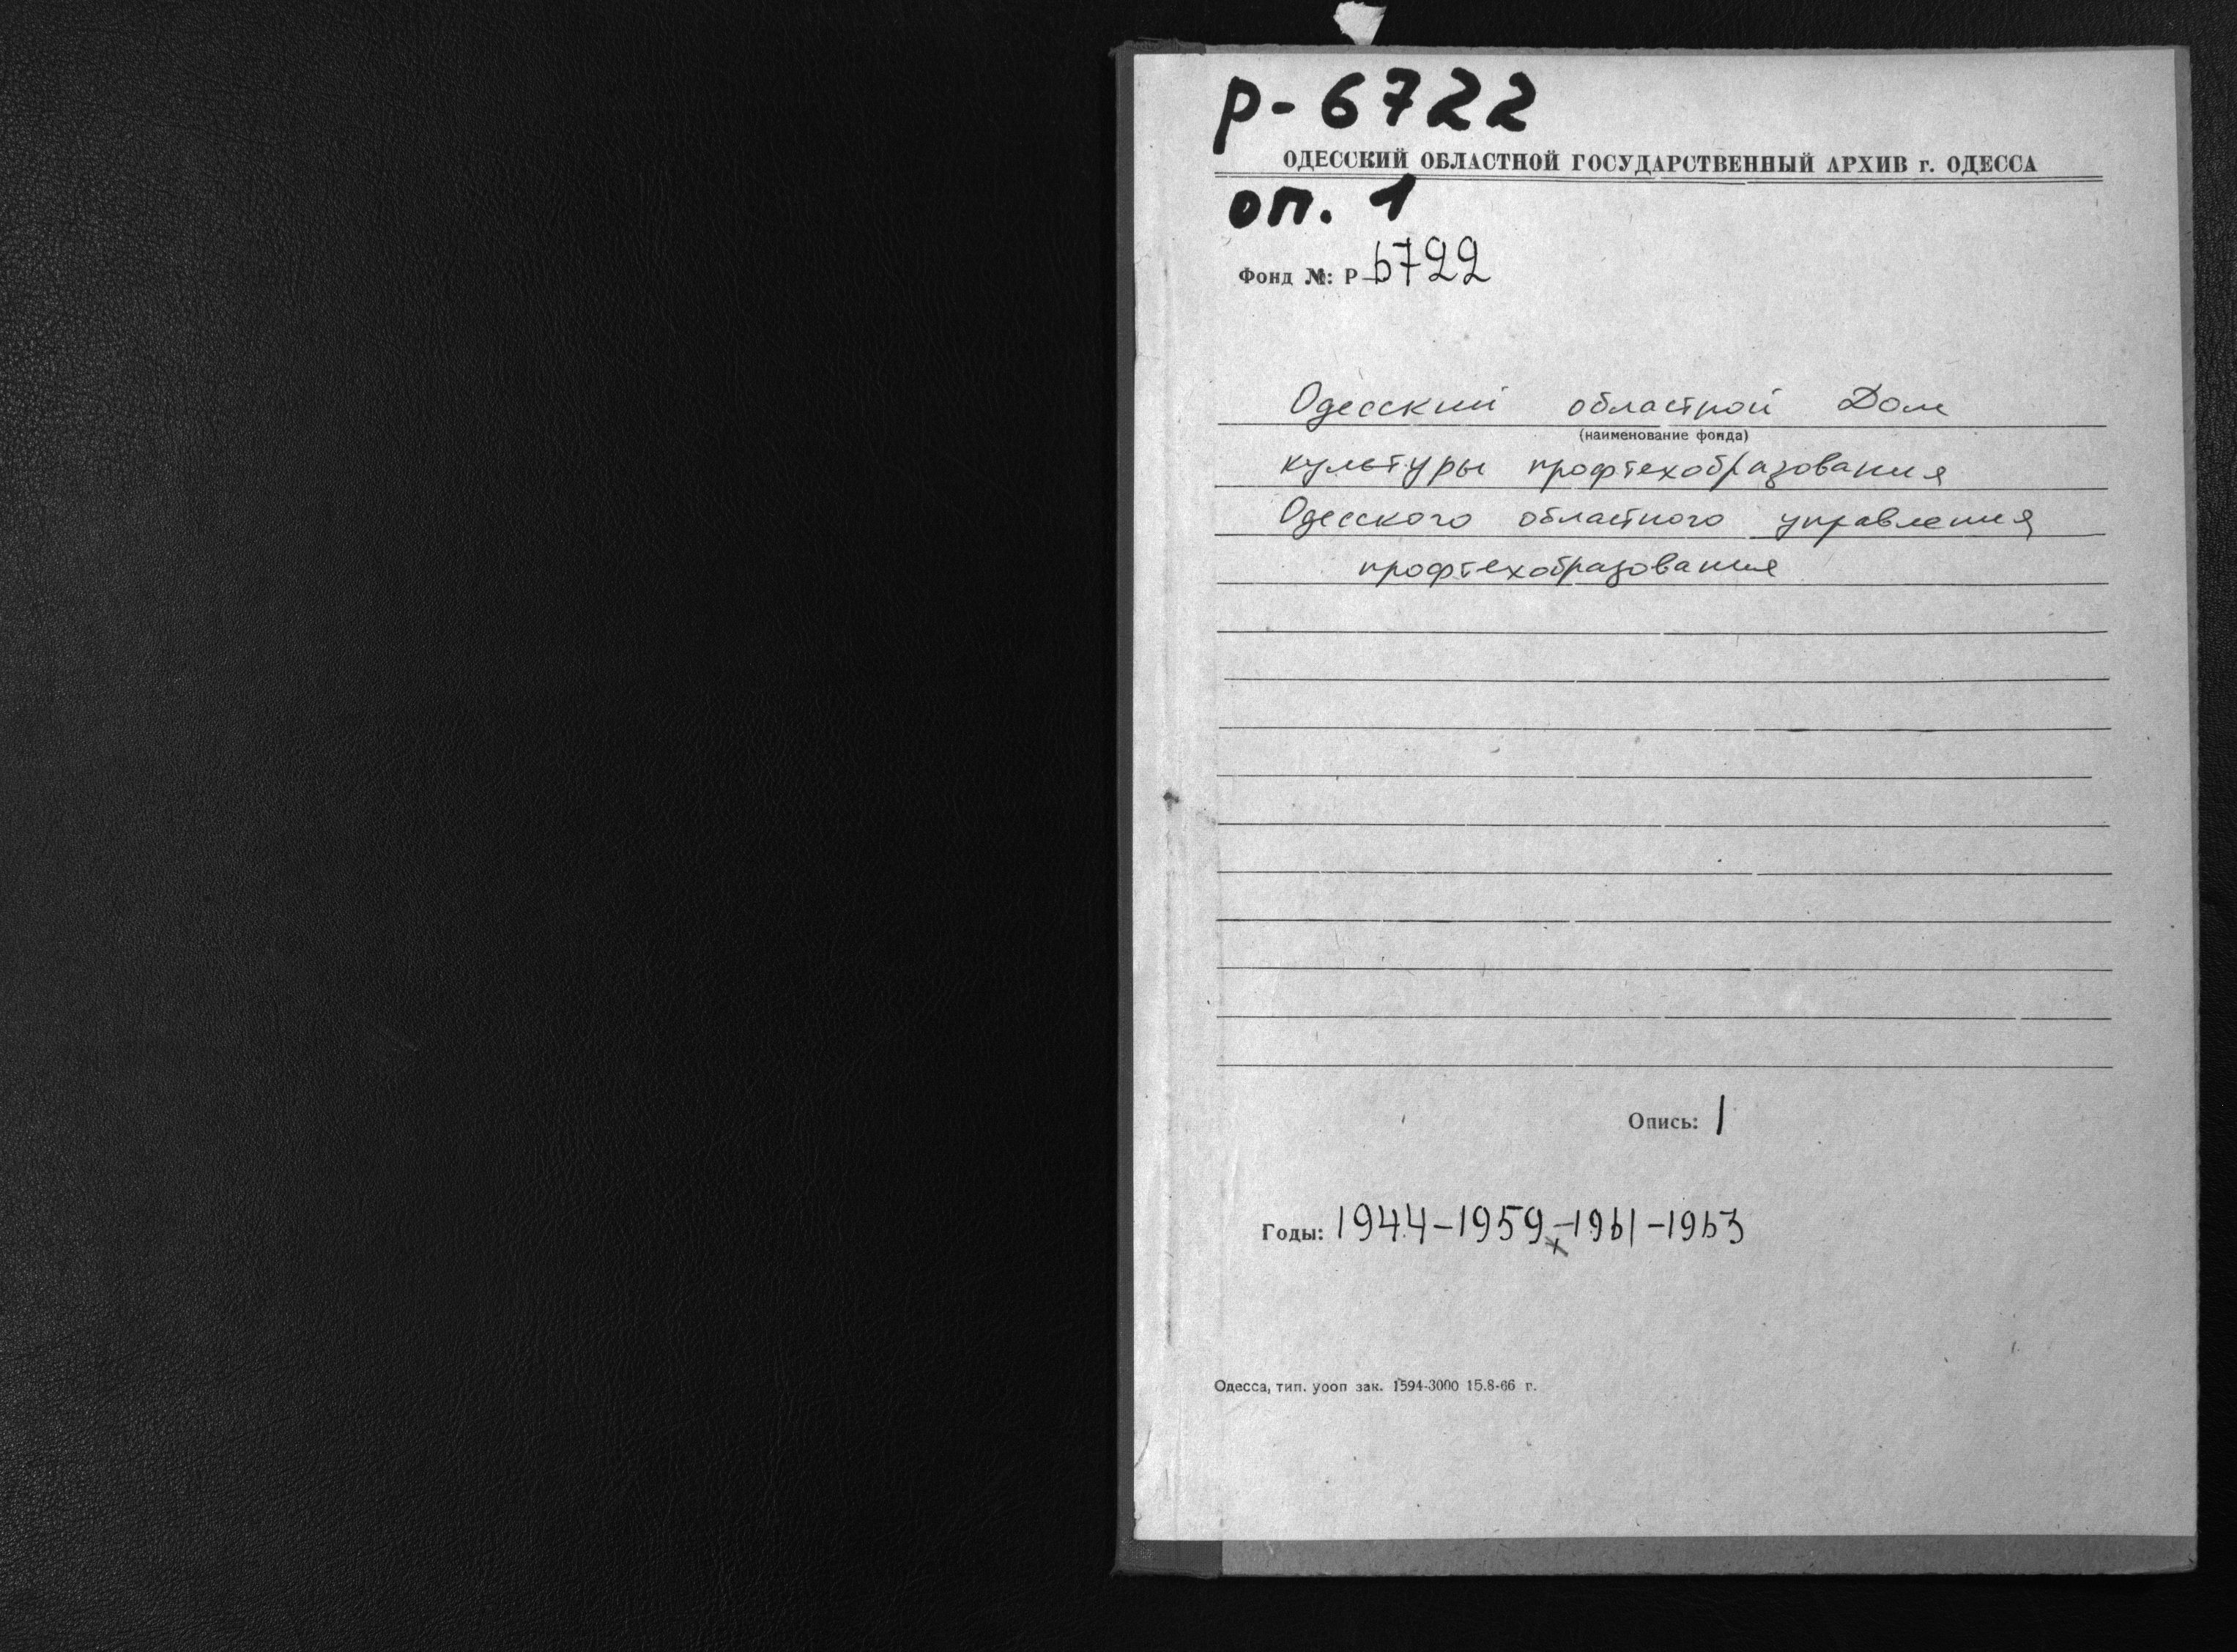 р-6722
ОДЕССКИЙ ОБЛАСТНОЙ ГОСУДАРСТВЕННЫЙ АРХИВ г. ОДЕССА
оп. 1
Фонд №: Р-6722
Одесский областной Дом
(наименование фонда)
культуры профтехобразования
Одесского областного управления
профтехобразования
Опись: 1
Годы: 1944-1959,-1961-1963
Одесса, тип. уооп зак. 1594-3000 15.8-66 г.